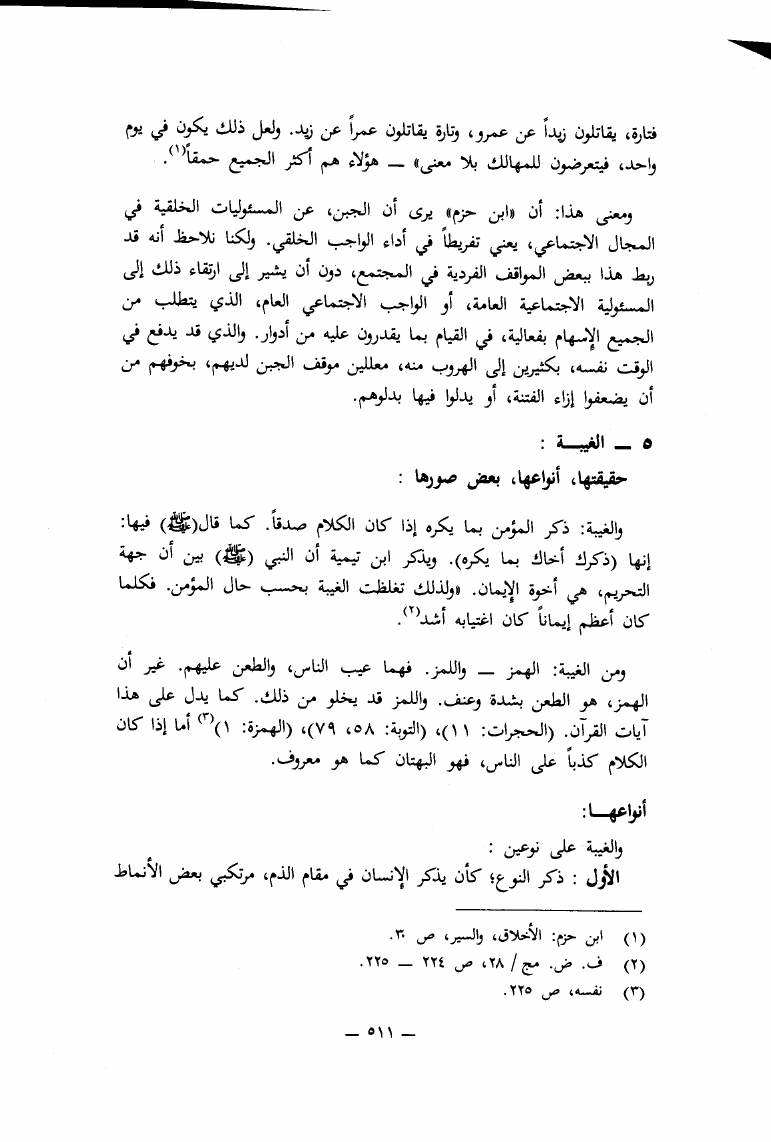 فتارة، يقاتلون زيداً عن عمرو، وتارة يقاتلون عمراً عن زيد. ولعل ذلك يكون في يوم
واحد، فيتعرضون للمهالك بلا معنى» — هؤلاء هم أكثر الجميع حمقاً(١).
ومعنى هذا: أن «ابن حزم» يرى أن الجبن، عن المسئوليات الخلقية في
المجال الاجتماعي، يعني تفريطاً في أداء الواجب الخلقي. ولكنا نلاحظ أنه قد
ربط هذا ببعض المواقف الفردية في المجتمع، دون أن يشير إلى ارتقاء ذلك إلى
المسئولية الاجتماعية العامة، أو الواجب الاجتماعي العام، الذي يتطلب من
الجميع الإسهام بفعالية، في القيام بما يقدرون عليه من أدوار. والذي قد يدفع في
الوقت نفسه، بكثيرين إلى الهروب منه، معللين موقف الجبن لديهم، بخوفهم من
أن يضعفوا إزاء الفتنة، أو يدلوا فيها بدلوهم.
٥ — الغيبـــة :
حقيقتها، أنواعها، بعض صورها :
والغيبة: ذكر المؤمن بما يكره إذا كان الكلام صدقاً. كما قال(ﷺ) فيها:
إنها (ذكرك أخاك بما يكره). ويذكر ابن تيمية أن النبي (ﷺ) بين أن جهة
التحريم، هي أخوة الإيمان. «ولذلك تغلظت الغيبة بحسب حال المؤمن. فكلما
كان أعظم إيماناً كان اغتيابه أشد(٢).
ومن الغيبة: الهمز — واللمز. فهما عيب الناس، والطعن عليهم. غير أن
الهمز، هو الطعن بشدة وعنف. واللمز قد يخلو من ذلك. كما يدل على هذا
آيات القرآن. (الحجرات: ١١)، (التوبة: ٥٨، ٧٩)، (الهمزة: ١)(٣) أما إذا كان
الكلام كذباً على الناس، فهو البهتان كما هو معروف.
أنواعهــا:
والغيبة على نوعين :
الأول : ذكر النوع؛ كأن يذكر الإنسان في مقام الذم، مرتكبي بعض الأنماط
(١) ابن حزم: الأخلاق، والسير، ص ٣٠.
(٢) ف. ض. مج / ٢٨، ص ٢٢٤ — ٢٢٥.
(٣) نفسه، ص ٢٢٥.
— ٥١١ —